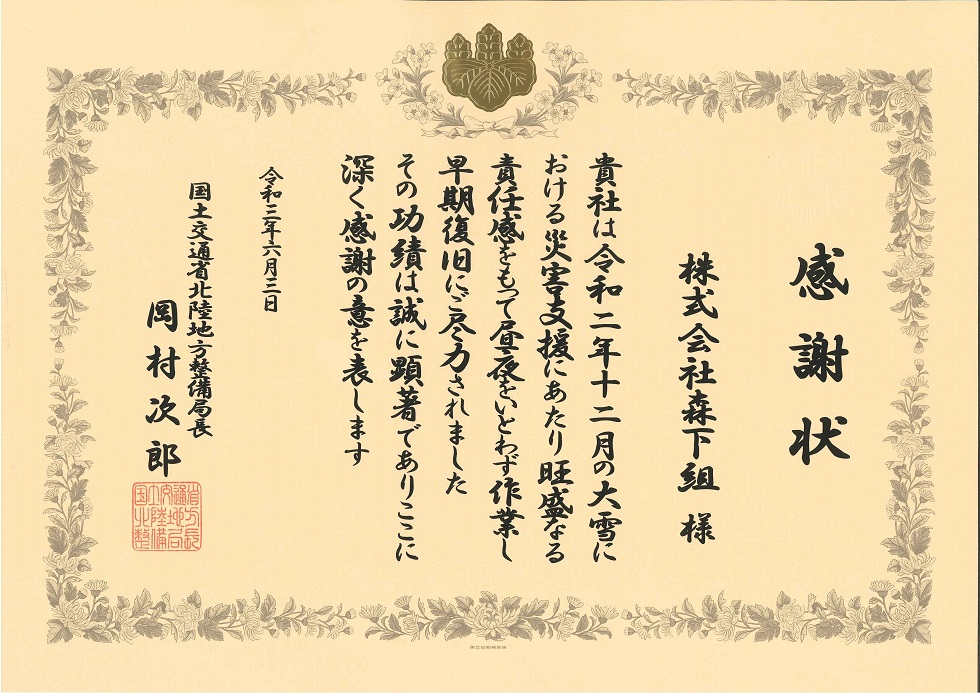 感謝状
株式会社森下組 様
貴社は令和二年十二月の大雪に
おける災害支援にあたり旺盛なる
責任感をもって昼夜をいとわず作業し
早期復旧にご尽力されました
その功績は誠に顕著でありここに
深く感謝の意を表します
令和三年六月三日
国土交通省北陸地方整備局長
岡村次郎